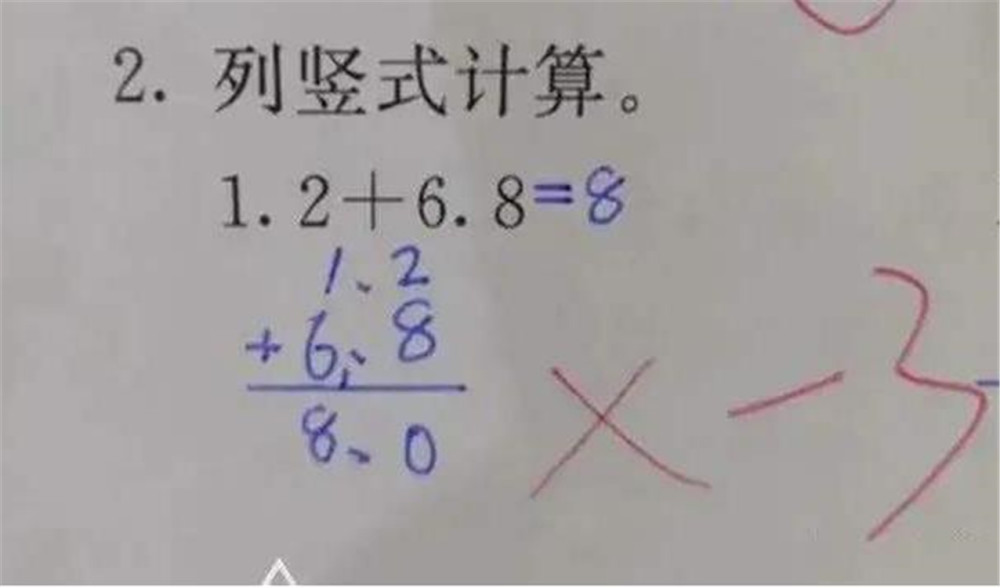 2. 列竖式计算。
1.2+6.8=8
1、2
+6、8
8、0
×-3